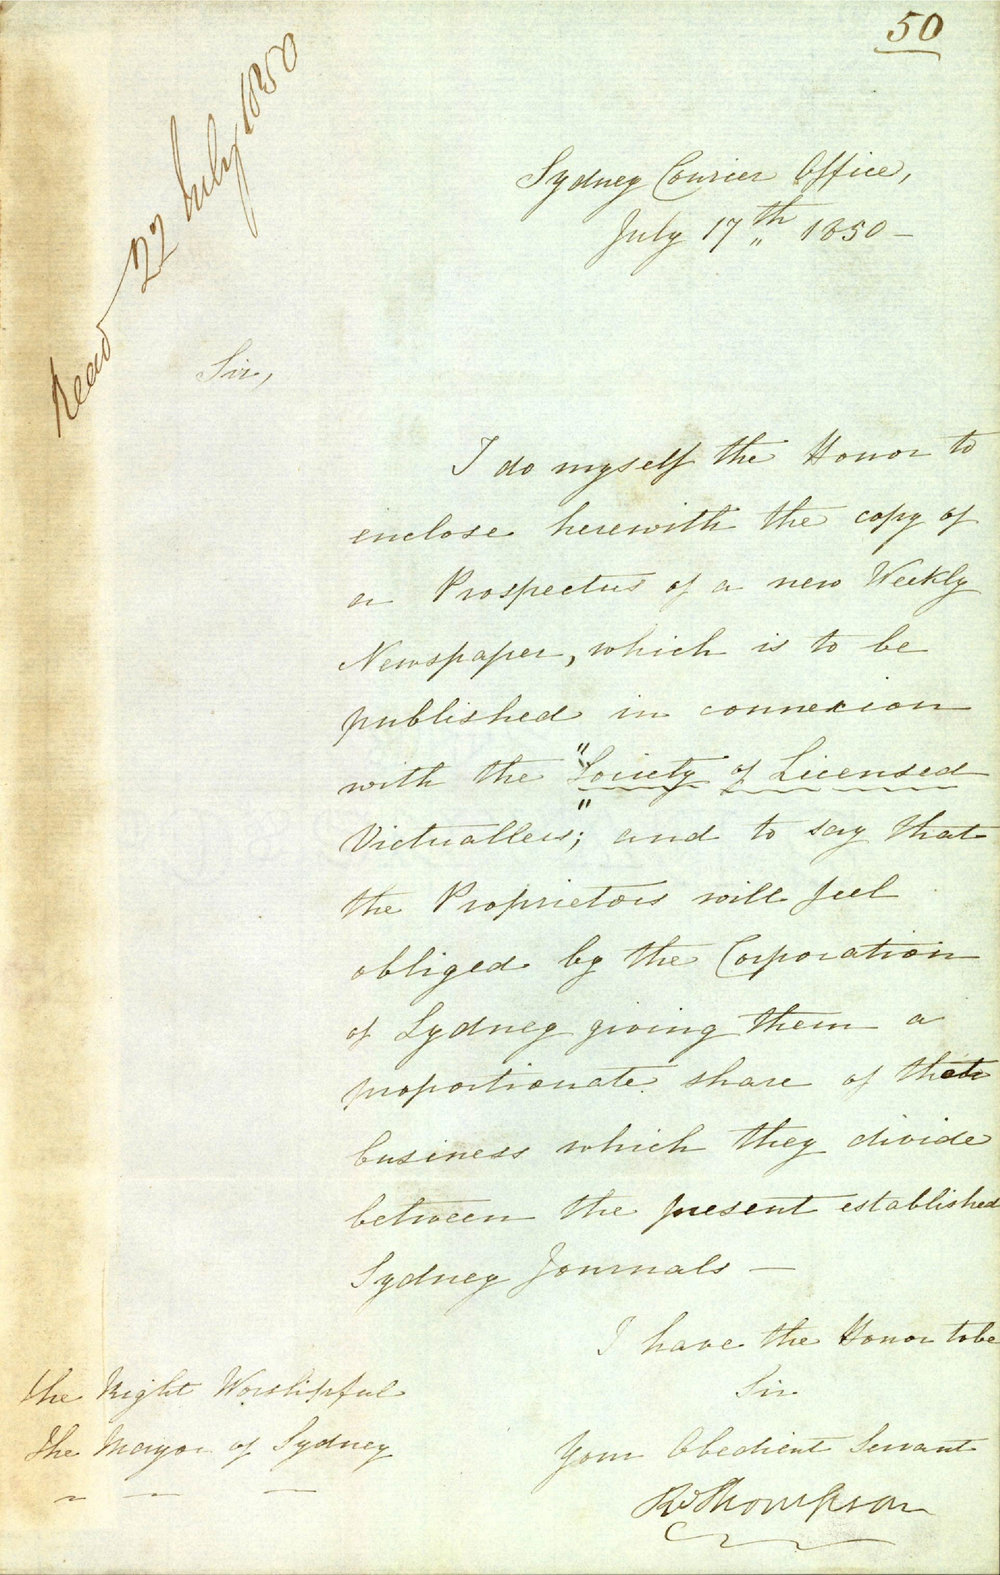 50
Read 22 July 1850
Sydney Courier Office,
July 17th 1850 —
Sir,
I do myself the Honor to
enclose herewith the copy of
a Prospectus of a new Weekly
Newspaper, which is to be
published in connexion
with the "Society of Licensed
Victuallers"; and to say that
the Proprietors will feel
obliged by the Corporation
of Sydney giving them a
proportionate share of that
business which they divide
between the present established
Sydney Journals —
I have the Honor to be
Sir
Your Obedient Servant
Thompson
The Right Worshipful
The Mayor of Sydney